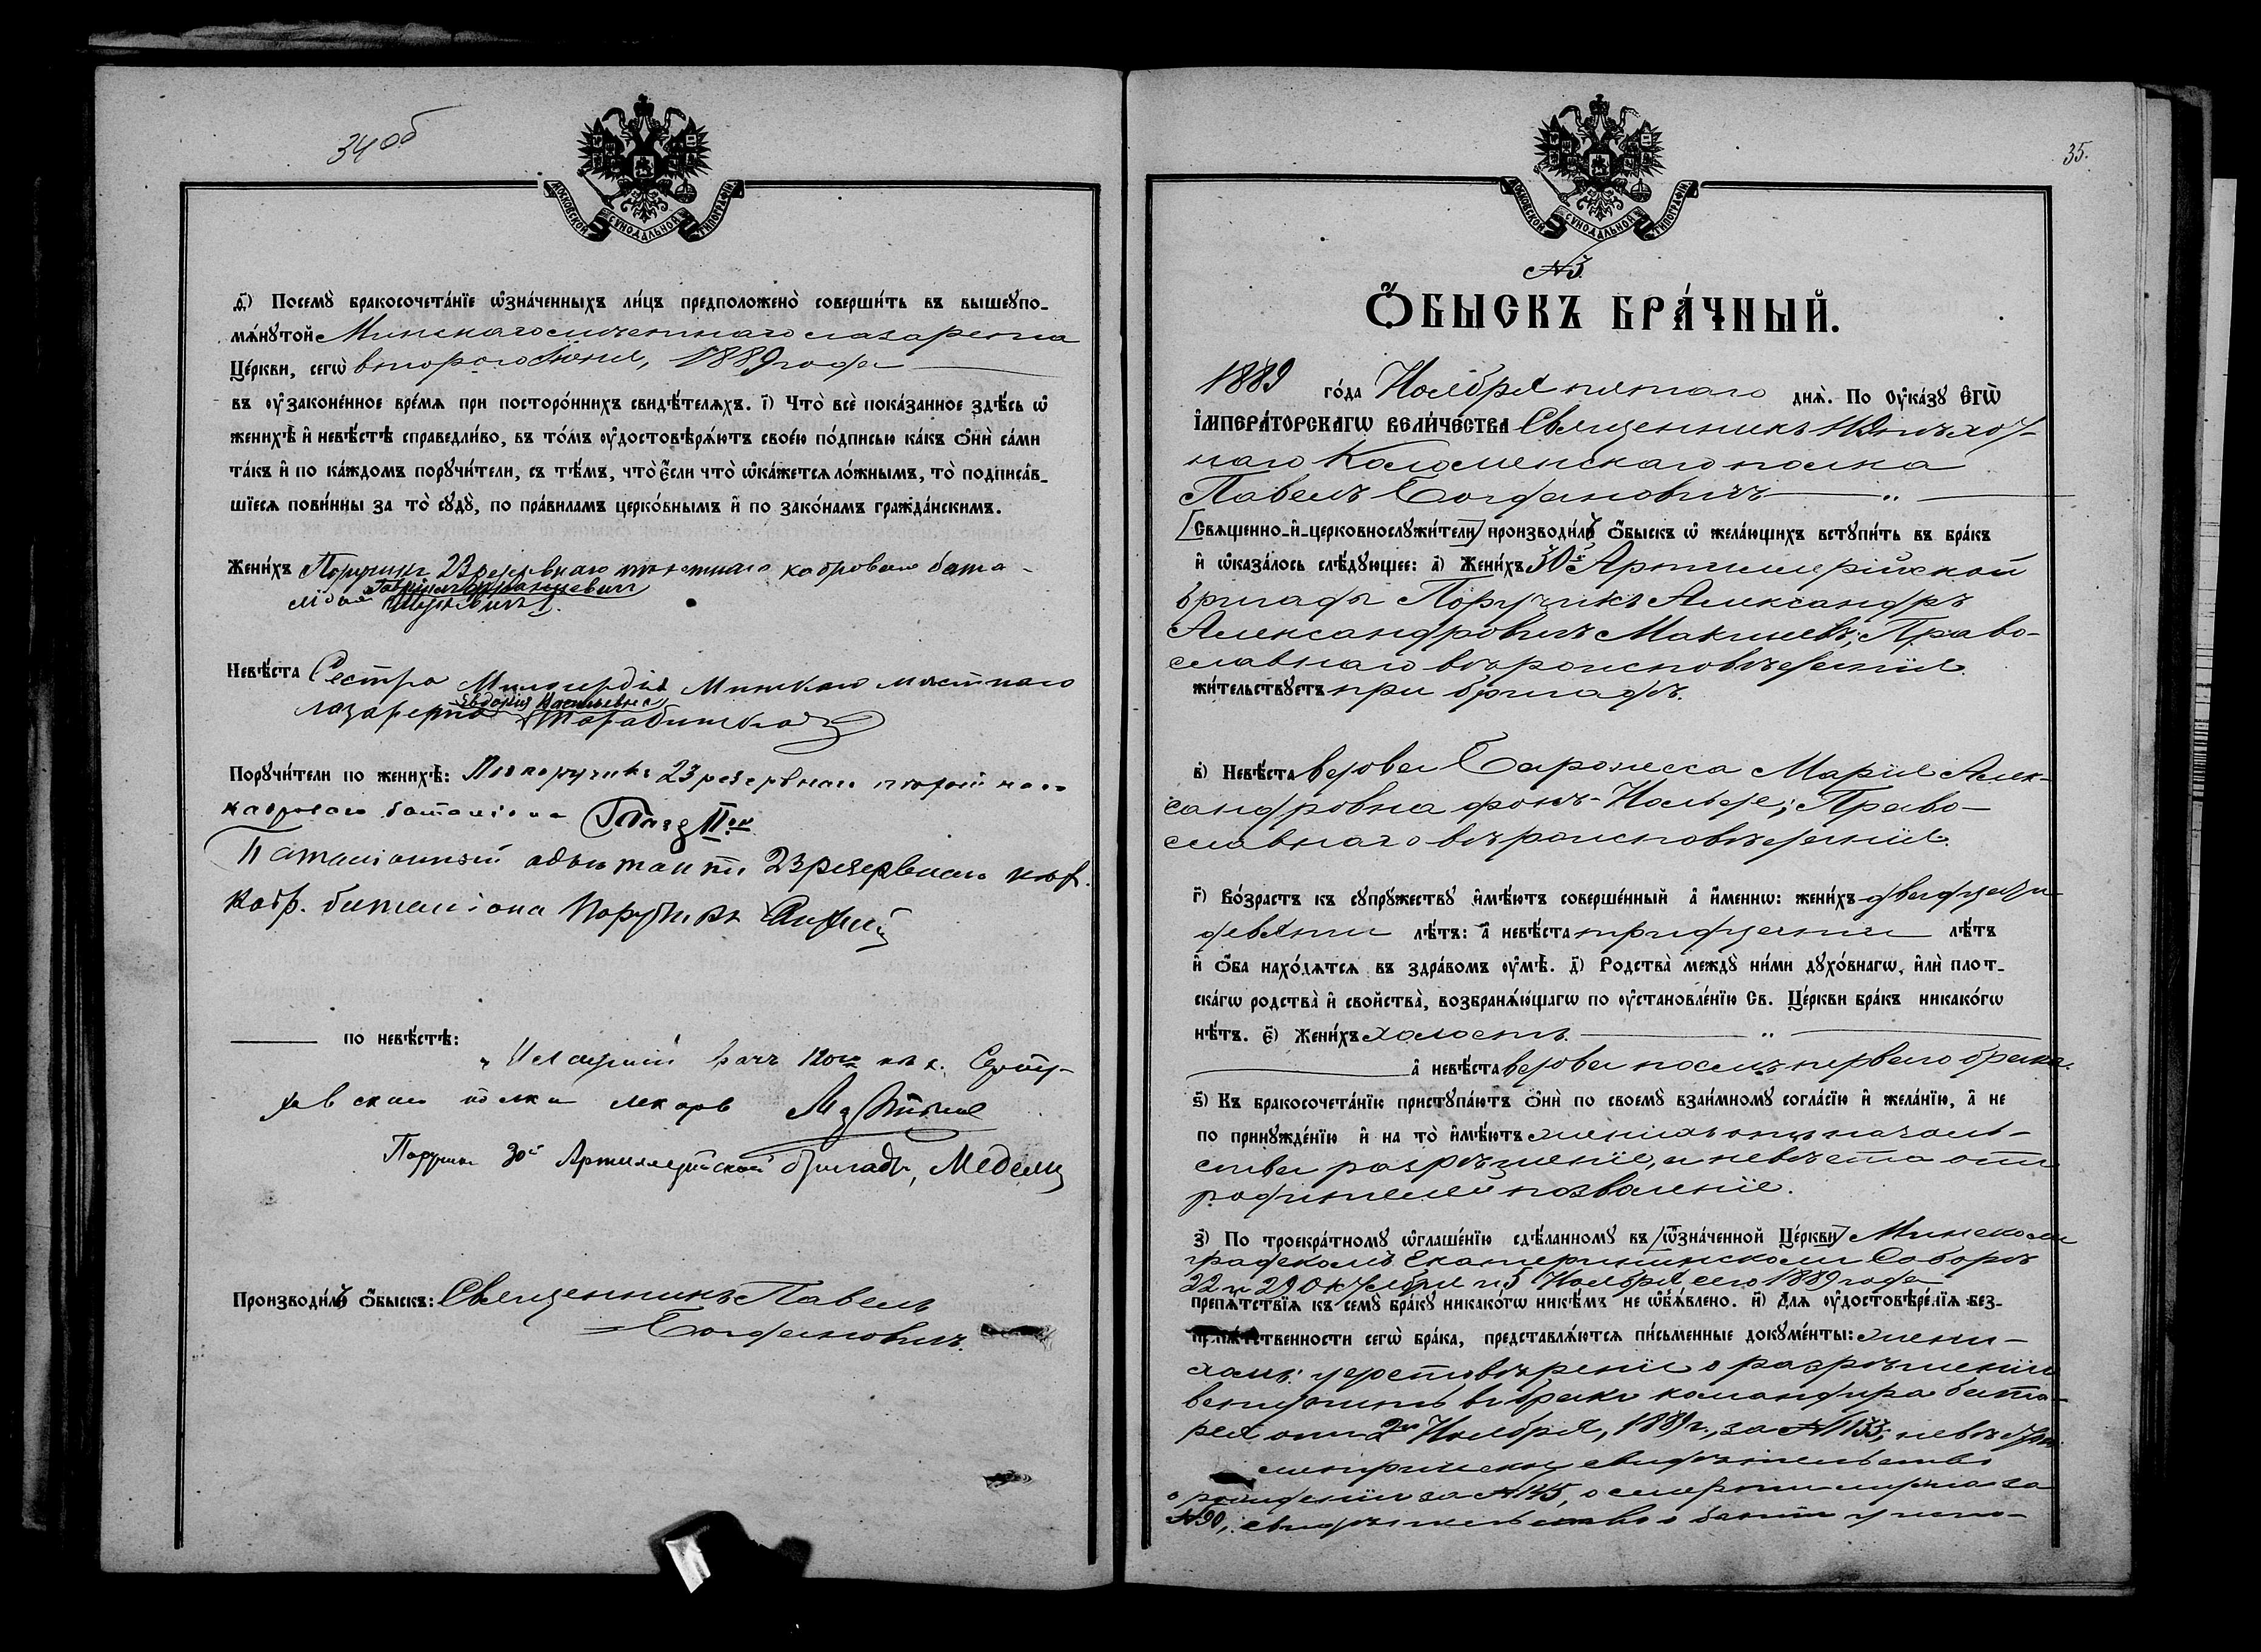 34 об
МОСКОВСКОЙ СѴНОДАЛЬНОЙ ТИПОГРАФІИ
д҃) Посемꙋ̀ бракосочета́нїе ѡ҆зна́ченныхъ ли́цъ предположено̀ соверши́ть въ вышеꙋпо-
мѧ́нꙋтой Минскаго мѣстнаго лазарета
Це́ркви, сегѡ̀ второго Іюня, 1889 года
въ ᲂу҆законе́нное вре́мѧ при посторо́ннихъ свидѣ́телѧхъ. і҃) Что̀ всѐ пока́занное здѣ́сь ѡ҆
женихѣ̀ и҆ невѣ́стѣ справедли́во, въ то́мъ ᲂу҆достовѣрѧ́ютъ свое́ю по́дписью ка́къ ѻ҆нѝ са́ми
та́къ и҆ по ка́ждомъ порꙋчи́тели, съ тѣ́мъ, что̀ є҆́сли что̀ ѡ҆ка́жетсѧ ло́жнымъ, то̀ подписа́в-
шїесѧ пови́нны за то̀ сꙋдꙋ̀, по пра́виламъ церко́внымъ и҆ по зако́намъ гражда́нскимъ.
Жени́хъ Поручикъ 23 резервнаго пѣхотнаго кадроваго бата-
Невѣ́ста Сестра Милосердія Минскаго мѣстнаго
Евдокія Васильевна
лазарета
Порꙋчи́тели по женихѣ̀: Подпоручикъ 23 резервнаго пѣхотнаго
кадроваго баталіона
Баталіонный адъютантъ 23 резервнаго пѣх.
кадр. баталіона Поручикъ
по невѣ́стѣ:
Младшій врачъ 120го пѣх. Серпу-
ховскаго полка лекарь
Поручикъ 30й Артиллерійской бригады,
Производи́лъ ѻ҆́быскъ: Священникъ Павелъ
Богдановичъ.
35.
МОСКОВСКОЙ СѴНОДАЛЬНОЙ ТИПОГРАФІИ
№3.
Ѻ҆́БЫСКЪ БРА́ЧНЫЙ.
1889 го́да Ноября пятаго днѧ̀. По Оу҆ка́зꙋ Є҆гѡ̀
І҆мпера́торскагѡ вели́чества Священникъ 119 пѣхот-
наго Коломенскаго полка
Павелъ Богдановичъ
[Свѧщенно-и҆-церковнослꙋжи́тели] производи́лъ ѻ҆́быскъ ѡ҆ жела́ющихъ встꙋпи́ть въ бра́къ
и҆ ѡ҆каза́лось слѣ́дꙋющее: а҃) Жени́хъ 30й Артиллерійской
бригады Поручикъ Александръ
Александровичъ Макшеевъ; Право-
славнаго вѣроисповѣданія.
жи́тельствꙋетъ при бригадѣ.
в҃) Невѣ́ста вдова Баронесса Марія Алек-
сандровна фонъ-Нольде; Право-
славнаго вѣроисповѣданія.
г҃) Во́зрастъ къ сꙋпрꙋ́жествꙋ и҆мѣ́ютъ соверше́нный а҆̀ и҆́меннѡ: жени́хъ двадцати
девяти лѣ́тъ: а҆̀ невѣ́ста тридцати лѣ́тъ
и҆ ѻ҆́ба нахо́дѧтсѧ въ здра́вомъ ᲂу҆мѣ̀. д҃) Родства̀ междꙋ̀ ни́ми дꙋхо́внагѡ, и҆лѝ плот-
ска́гѡ родства̀ и҆ сво́йства̀, возбранѧ́ющагѡ по ᲂу҆становле́нїю Св. Це́ркви бра́къ никако́гѡ
нѣ́тъ. є҃) Жени́хъ холостъ.
а҆̀ невѣ́ста вдова послѣ перваго брака.
ѕ҃) Къ бракосочета́нїю пристꙋпа́ютъ ѻ҆нѝ по своемꙋ̀ взаи́мномꙋ согла́сїю и҆ жела́нїю, а҆̀ не
по принꙋжде́нїю и҆ на то̀ и҆мѣ́ютъ женихъ отъ началь-
ства разрѣшеніе, а невѣста отъ
родителей позволеніе.
з҃) По троекра́тномꙋ ѡ҆глаше́нїю сдѣ́ланномꙋ въ [ѡ҆зна́ченной Це́ркви] Минскомъ
градскомъ Екатерининскомъ Соборѣ
22 и 29 Октября и 5 Ноября сего 1889 года
препѧ́тствїѧ къ семꙋ̀ бра́кꙋ никако́гѡ никѣ́мъ не ѡ҆бъѧ́влено. и҃) Длѧ ᲂу҆достовѣре́нїѧ без-
препѧ́тственности сегѡ̀ бра́ка, представлѧ́ютсѧ пи́сьменные докꙋме́нты: жени-
хомъ: удостовѣреніе о разрѣшеніи
вступить въ бракъ командира бата-
реи отъ 2го Ноября, 1889 г., за №1133; невѣстою:
метрическое свидѣтельство
о рожденіи за №145, о смерти мужа за
№90, свидѣтельство о